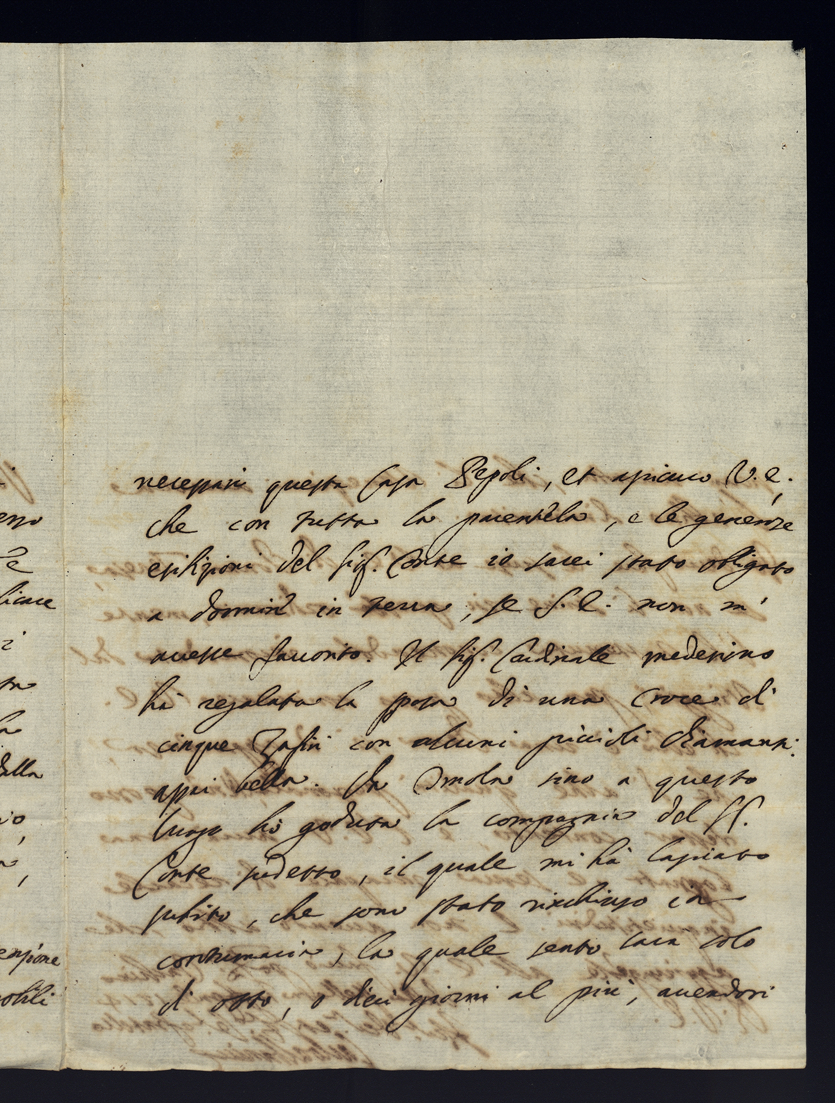 necessari questa Casa Pepoli, et assicuro V. E.
che con tutta la parentela, e le generose
esibizioni del Sig. Conte io sarei stato obligato
a dormire in terra, se S. E. non m'
avesse favorito. Il Sig. Cardinale medesimo
hà regalata la sposa di una Croce di
cinque Zafiri con alcuni piccioli diamanti
assai bella. Da Imola sino a questo
luogo hò goduta la compagnia del Sig.
Conte sudetto, il quale mi hà lasciato
subito, che sono stato rinchiuso in
contumacia, la quale sento sarà solo
di otto, o dieci giorni al più, avendosi